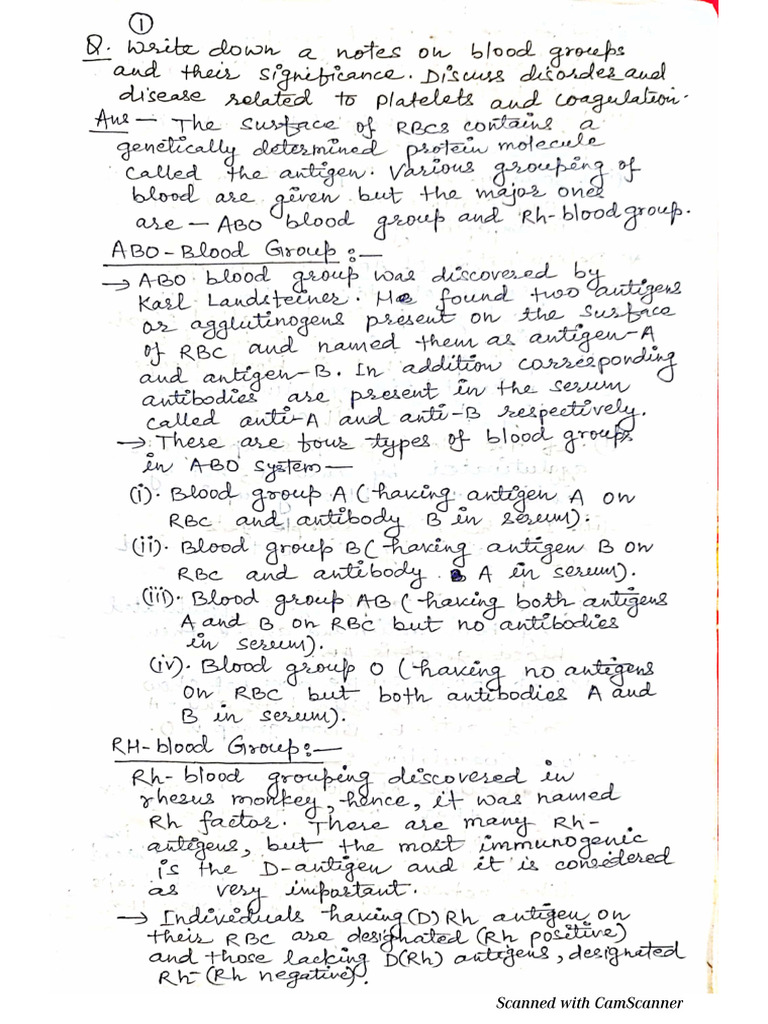 1
Q. Write down a notes on blood groups
and their significance. Discuss disorder and
disease related to platelets and coagulation.
Ans — The surface of RBCs contains a
genetically determined protein molecule
called the antigen. Various grouping of
blood are given but the major ones
are — ABO blood group and Rh-blood group.
ABO-Blood Group :—
→ ABO blood group was discovered by
Karl Landsteiner. He found two antigens
or agglutinogens present on the surface
of RBC and named them as antigen-A
and antigen-B. In addition corresponding
antibodies are present in the serum
called anti-A and anti-B respectively.
→ These are four types of blood groups
in ABO system—
(i). Blood group A (having antigen A on
RBC and antibody B in serum).
(ii). Blood group B (having antigen B on
RBC and antibody A in serum).
(iii). Blood group AB (having both antigens
A and B on RBC but no antibodies
in serum).
(iv). Blood group O (having no antigens
on RBC but both antibodies A and
B in serum).
RH-blood Group:—
Rh-blood grouping discovered in
rhesus monkey, hence, it was named
Rh factor. There are many Rh-
antigens, but the most immunogenic
is the D-antigen and it is considered
as very important.
→ Individuals having (D) Rh antigen on
their RBC are designated (Rh positive)
and those lacking D(Rh) antigens, designated
Rh-(Rh negative).
Scanned with CamScanner